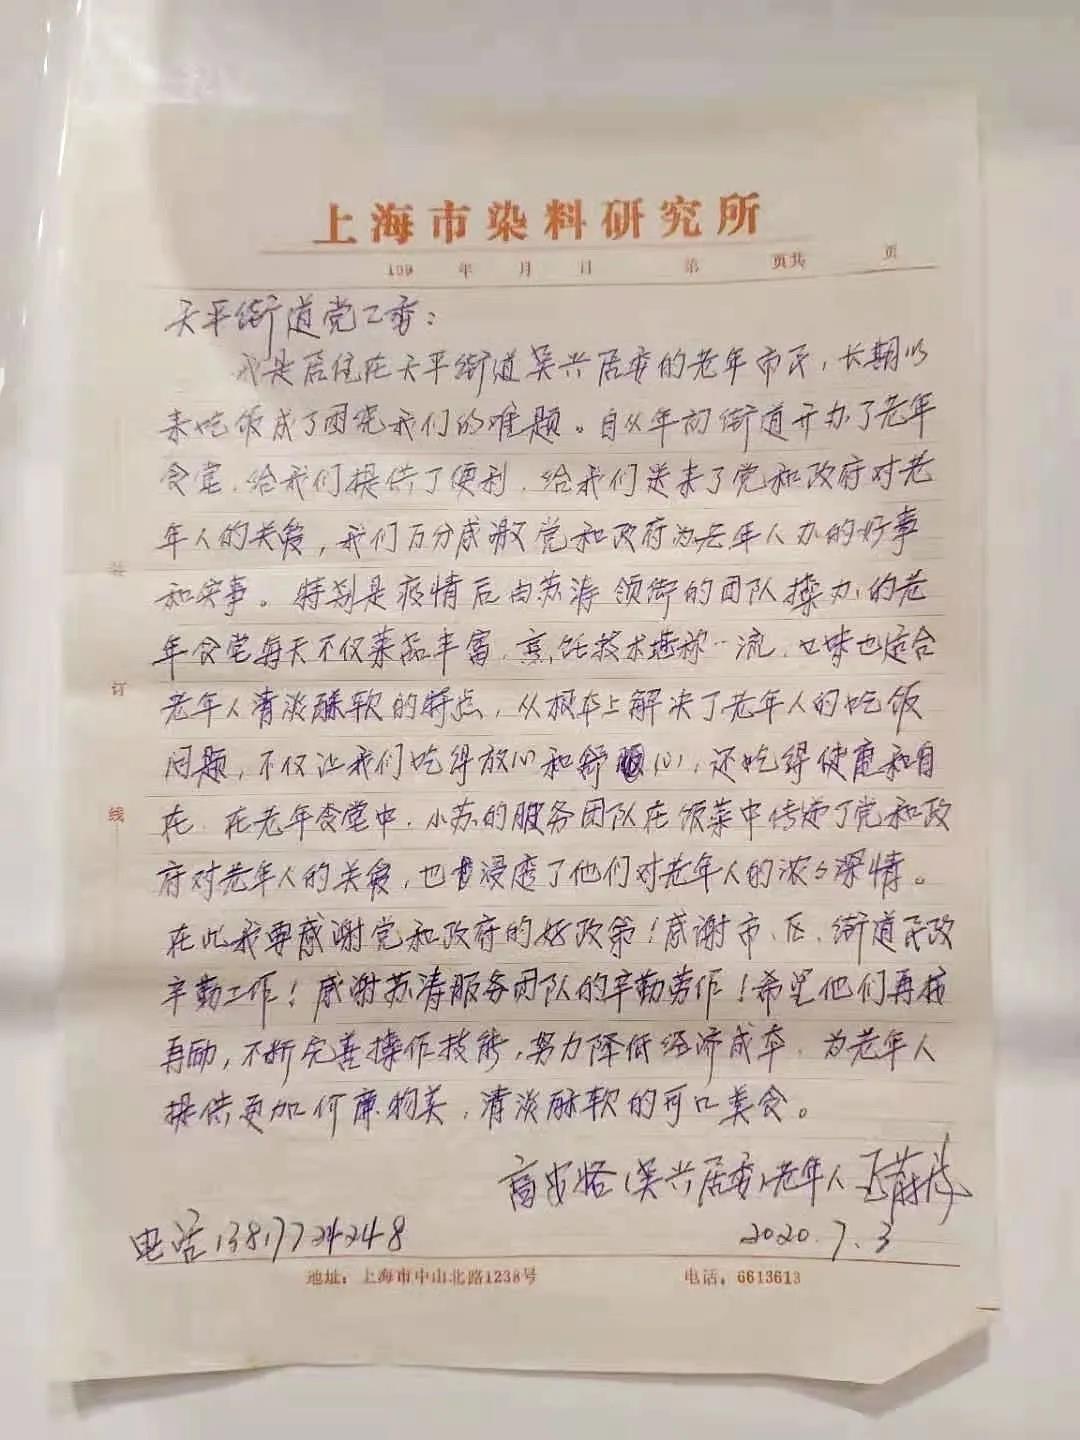 上海市染料研究所
199 年 月 日 第 页共 页
天平街道党工委：
我是居住在天平街道吴兴居委的老年市民，长期以
来吃饭成了困绕我们的难题。自从年初街道开办了老年
食堂，给我们提供了便利，给我们送来了党和政府对老
年人的关爱，我们万分感激党和政府为老年人办的好事
和实事。特别是疫情后由苏涛领衔的团队操办的老
年食堂每天不仅菜品丰富，烹饪技术堪称一流，口味也适合
老年人清淡酥软的特点，从根本上解决了老年人的吃饭
问题，不仅让我们吃得放心和舒心，还吃得健康和自
在。在老年食堂中，小苏的服务团队在饭菜中传递了党和政
府对老年人的关爱，也浸透了他们对老年人的浓々深情。
在此我要感谢党和政府的好政策！感谢市、区、街道民政
辛勤工作！感谢苏涛服务团队的辛勤劳作！希望他们再接
再励，不断完善操作技能，努力降低经济成本，为老年人
提供更加价廉物美，清淡酥软的可口美食。
高安路（吴兴居委）老年人
电话，13817724248
2020.7.3
地址：上海市中山北路1238号 电话：6613613
装
订
线